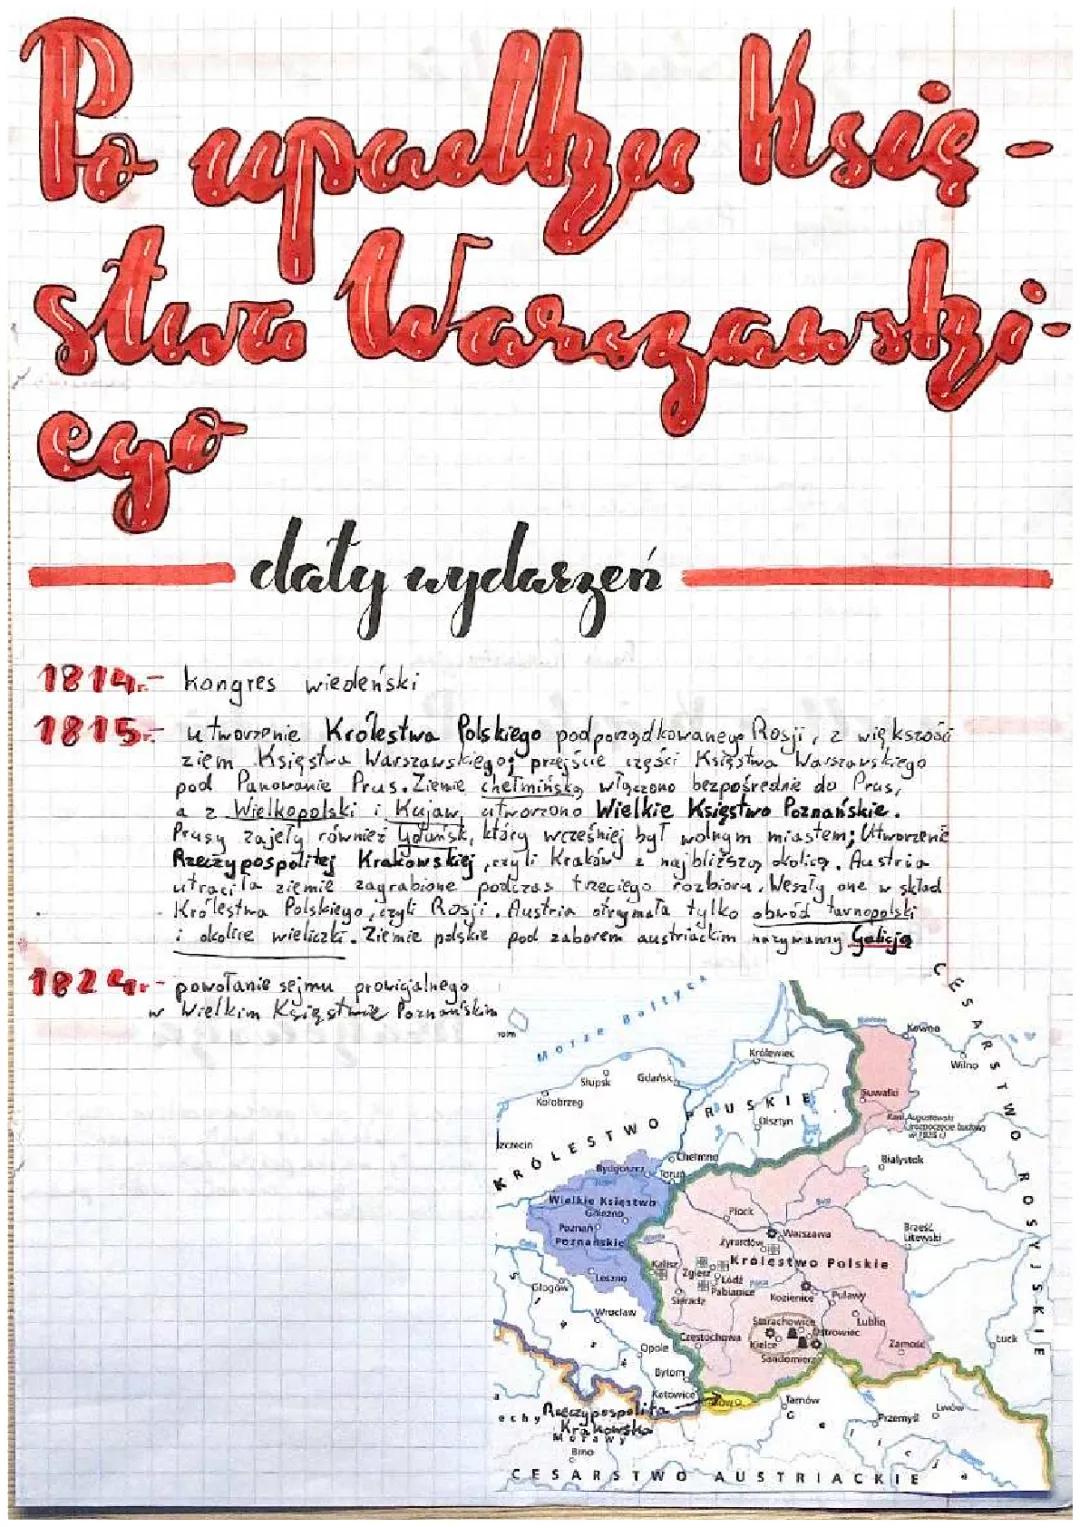 Po upadku Księ-
stwa Warszawski-
ego
daty wydarzeń
1814r.- kongres wiedeński
1815r.- utworzenie Królestwa Polskiego podporządkowanego Rosji, z większości
ziem Księstwa Warszawskiego; przejście części Księstwa Warszawskiego
pod Panowanie Prus. Ziemie chełmińską włączono bezpośrednie do Prus,
a z Wielkopolski i Kujaw utworzono Wielkie Księstwo Poznańskie.
Prusy zajęły również Gdańsk, który wcześniej był wolnym miastem; Utworzenie
Rzeczypospolitej Krakowskiej, czyli Kraków z najbliższą okolicą. Austria
utraciła ziemie zagrabione podczas trzeciego rozbioru. Weszły one w skład
Królestwa Polskiego, czyli Rosji. Austria otrzymała tylko obwód tarnopolski
i okolice wieliczki. Ziemie polskie pod zaborem austriackim nazywamy Galicją
1824r.- powołanie sejmu prowicjalnego
w Wielkim Księstwie Poznańskim
Morze Bałtyck
CESARSTWO ROSYJSKIE
Kowno
Wilno
Królewiec
Słupsk
Gdańsk
Kołobrzeg
Suwałki
KRÓLESTWO PRUSKIE
Olsztyn
Kanał Augustowski
(rozpoczęcie budowy
w 1825 r.)
zczecin
Chełmno
Białystok
Bydgoszcz
Toruń
Wielkie Księstwo
Gniezno
Poznań
Poznańskie
Płock
Warszawa
Brześć
Litewski
Żyrardów
Królestwo Polskie
Kalisz
Zgierz
Łódź
Pabianice
Leszno
Głogów
Sieradz
Kozienice
Puławy
Wrocław
Starachowice
Lublin
Częstochowa
Kielce
Ostrowiec
Łuck
Opole
Sandomierz
Zamość
Bytom
Katowice
Tarnów
Lwów
Przemyśl
Rzeczypospolita
Krakowska
echy
Morawy
Brno
Galicja
CESARSTWO AUSTRIACKIE